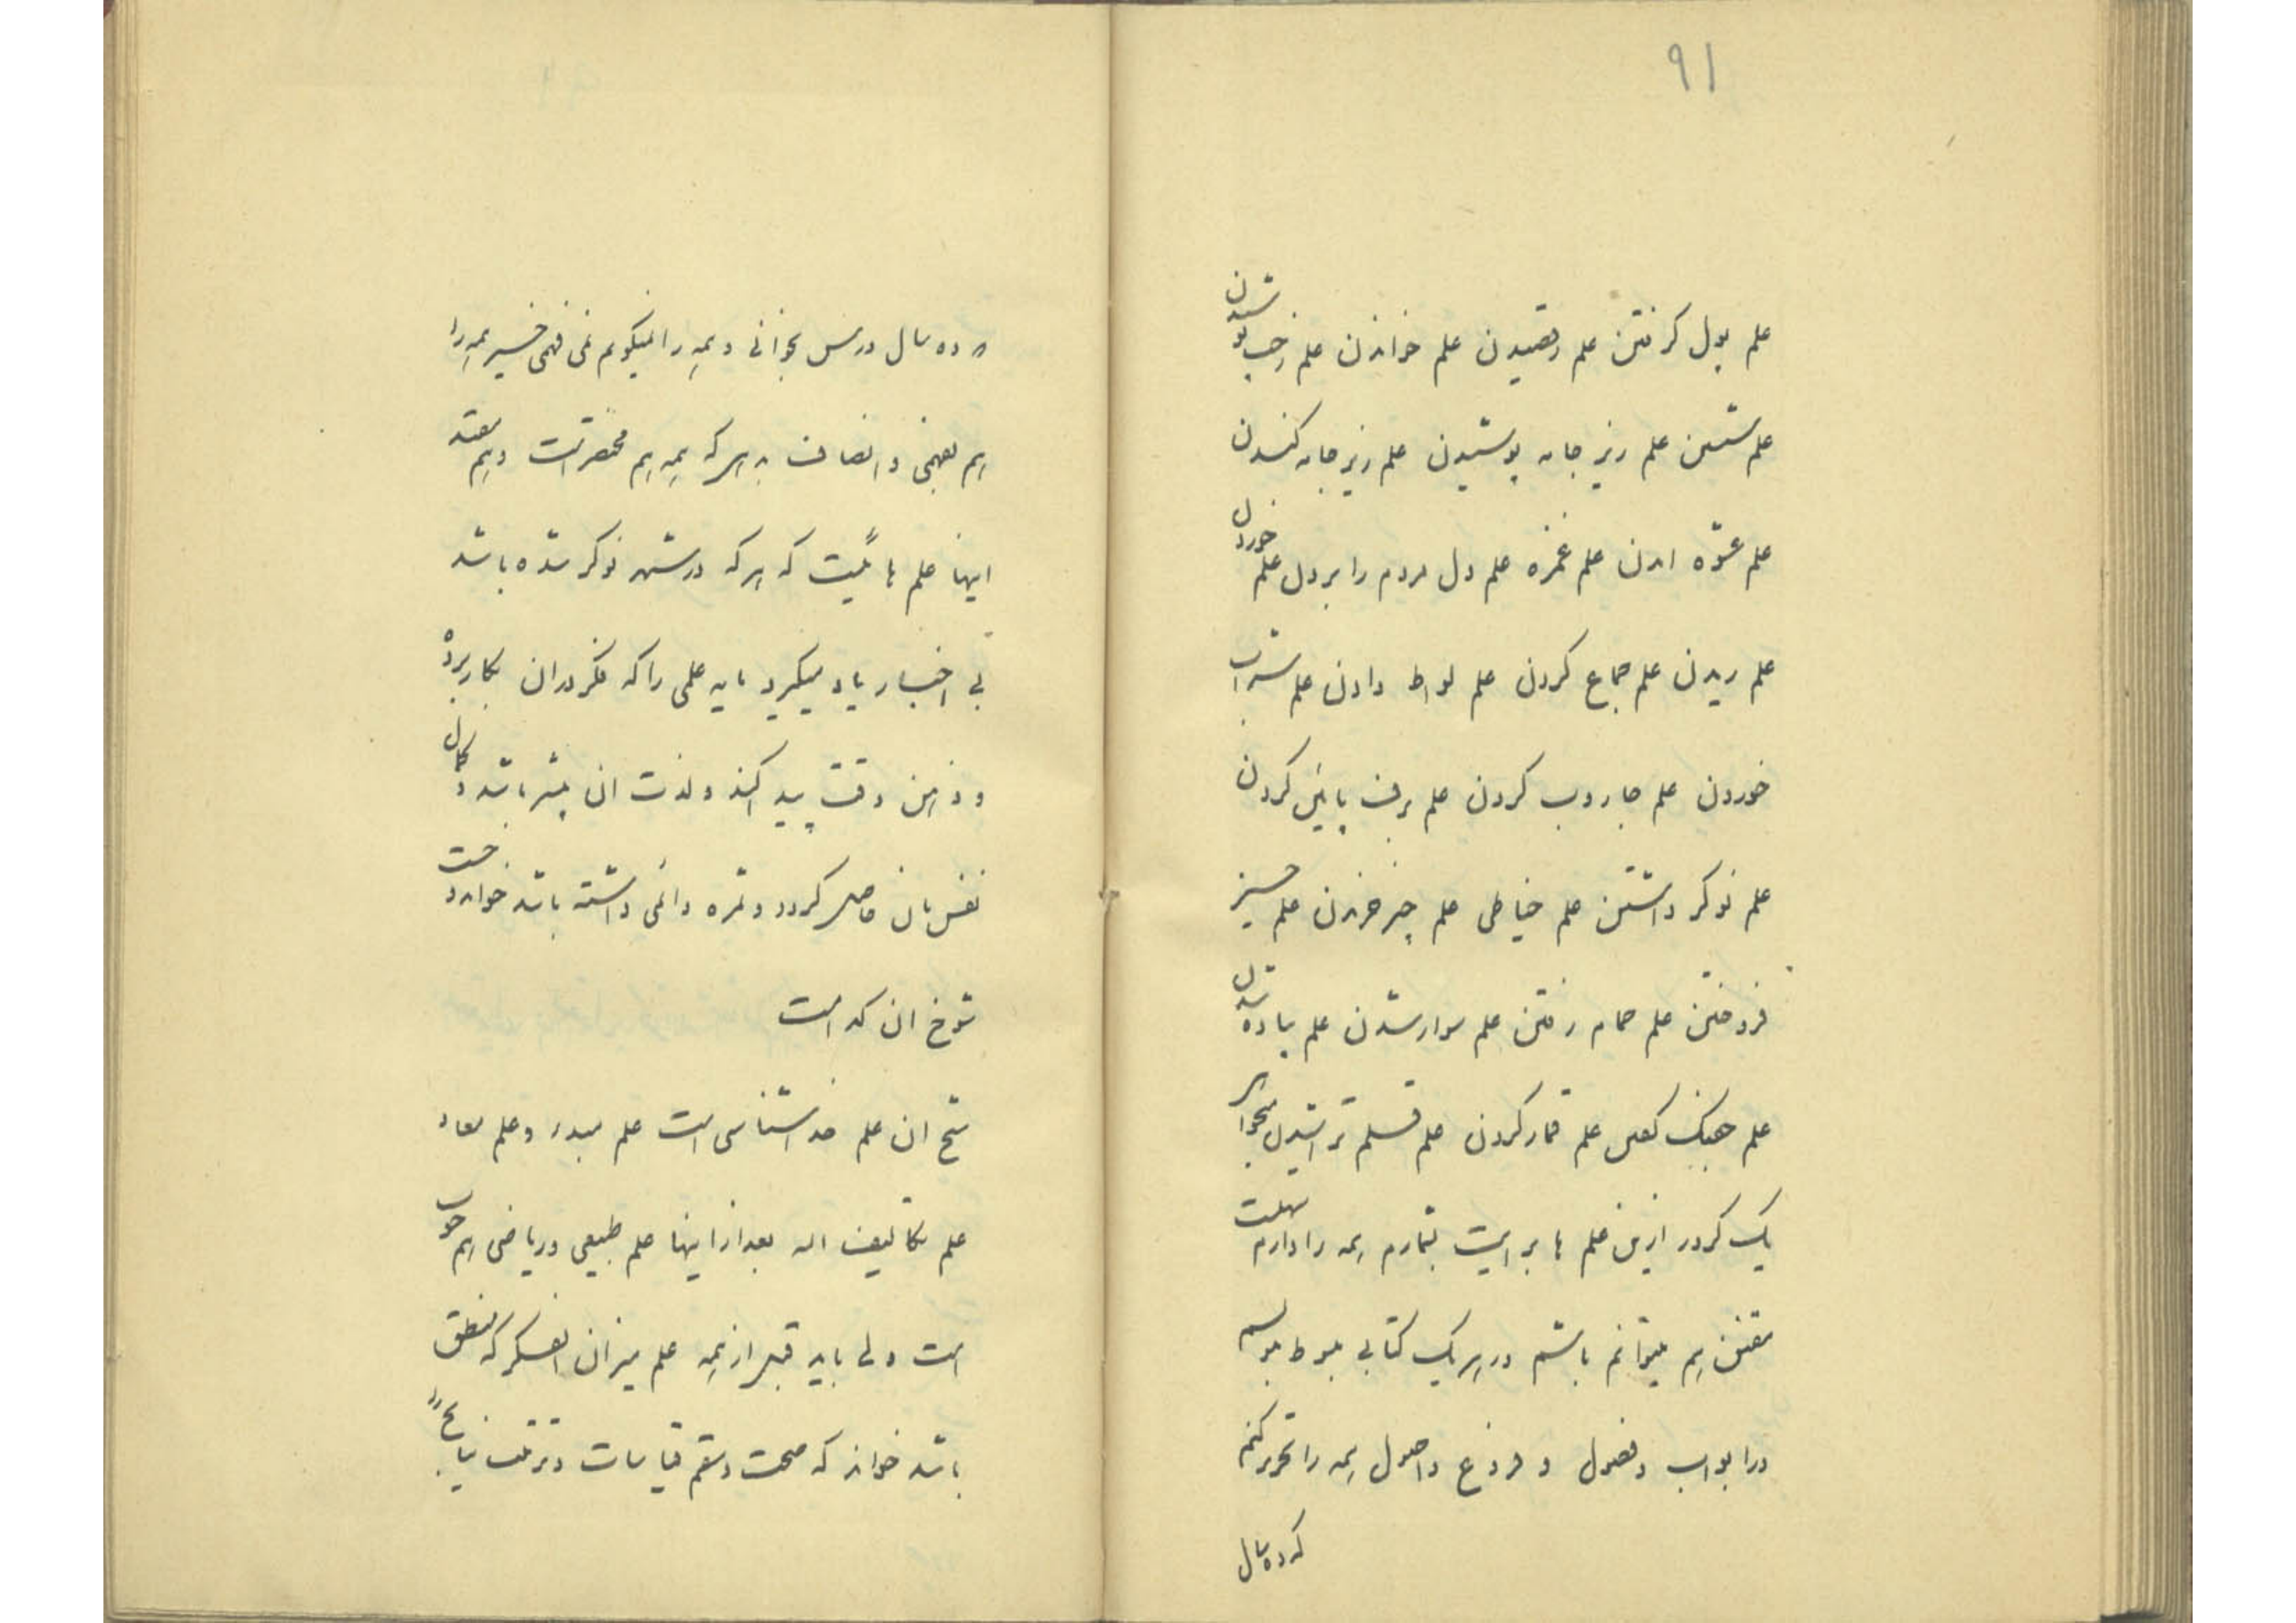 ۹۱
علم پول گرفتن علم رقصیدن علم خواندن علم رخت شدن
علم شستن علم زیر جامه پوشیدن علم زیر جامه کندن
علم عشوه امدن علم غمزه علم دل مردم را بردن علم خوردن
علم ریدن علم جماع کردن علم لواط دادن علم شراب
خوردن علم جاروب کردن علم برف پائین کردن
علم نوکر داشتن علم خیاطی علم چیز خریدن علم چیز
فروختن علم حمام رفتن علم سوار شدن علم پیاده شدن
علم جنگ علم قمار کردن علم قلم تراشیدن میخواهی
یک کرور ازین علم ها برایت بشمارم همه را دارم سهلست
مقنن هم میتوانم باشم در هر یک کتابی مبسوط بنویسم
در ابواب و فصول و فروع و اصول همه را تحریر کنم
که ده سال
ده سال درس بخوانی و همه را نمیگویم نمی فهمی خیر همه را
هم بفهمی و انصاف بدهی که همه هم مختصر است و هم مفید
اینها علم هائیست که هر که در شهر نوکر شده باشد
بی اختیار یاد میگیرد باید علمی را که فکر در ان بکار برد
و ذهن دقت پیدا کند و لذت ان بیشتر باشد و کمال
نفس بان حاصل گردد و ثمره دائمی داشته باشد خواند
شوخ ان کدام است
شیخ ان علم خداشناسی است علم مبدء و علم معاد
علم تکالیف اله بعد از اینها علم طبیعی و ریاضی هم خوب
است ولی باید قبل از همه علم میزان الفکر که منطق
باشد خواند که صحت و سقم قیاسات و ترتب نتایج